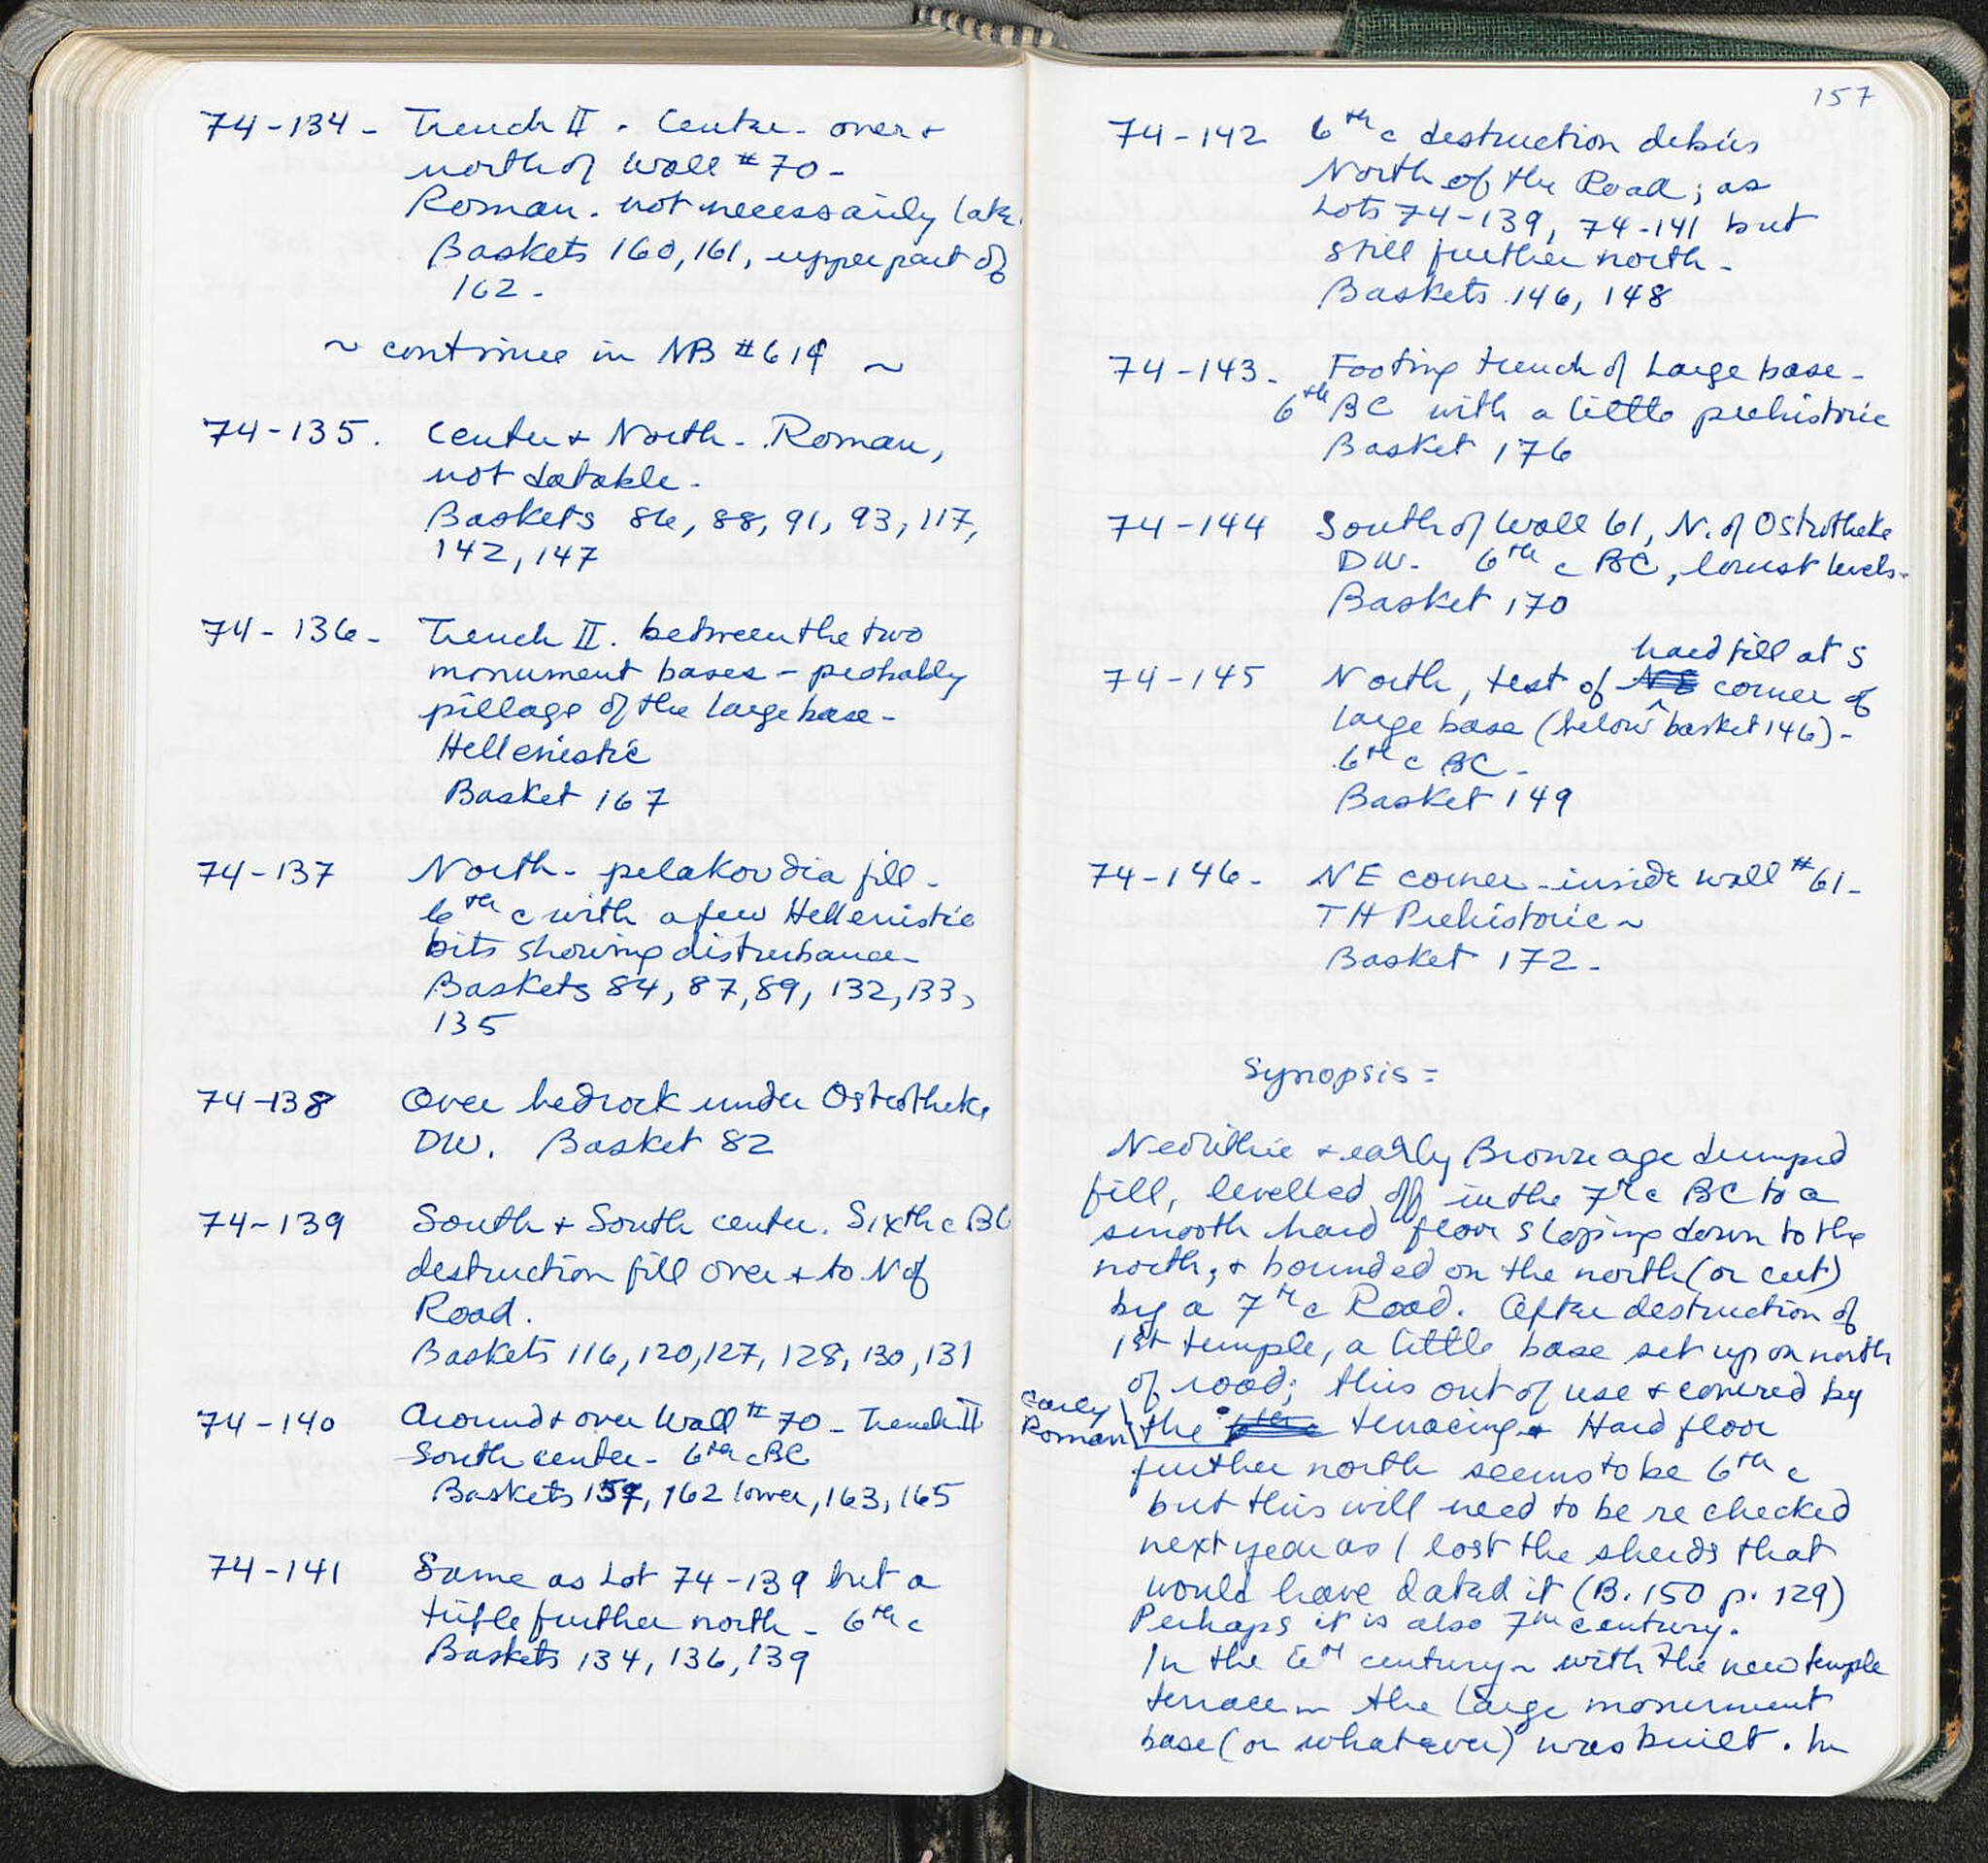 74-134 - Trench II . Center - over +
north of Wall # 70 -
Roman - not necessarily late.
Baskets 160, 161, upper part of
162 -
~ continue in NB # 614 ~
74-135. Center + North - Roman,
not datable -
Baskets 86, 88, 91, 93, 117,
142, 147
74-136 - Trench II. between the two
monument bases - probably
pillage of the large base -
Hellenistic
Basket 167
74-137 North - pelakoudia fill -
6th c with a few Hellenistic
bits showing disturbance -
Baskets 84, 87, 89, 132, 133,
135
74-138 Over bedrock under Ostotheke,
DW. Basket 82
74-139 South + South center. Sixth c BC
destruction fill over + to N of
Road.
Baskets 116, 120, 127, 128, 130, 131
74-140 Around + over Wall # 70 - Trench II
South center - 6th c BC
Baskets 159, 162 lower, 163, 165
74-141 Same as Lot 74-139 but a
trifle further north - 6th c
Baskets 134, 136, 139
157
74-142 6th c destruction debris
North of the Road; as
Lots 74-139, 74-141 but
still further north -
Baskets 146, 148
74-143 - Footing trench of Large base -
6th BC with a little prehistoric
Basket 176
74-144 South of Wall 61, N. of Ostotheke
DW - 6th c BC, lowest levels -
Basket 170
hard fill at S
74-145 North, test of NE corner of
large base (below basket 146) -
6th c BC -
Basket 149
74-146 - NE corner - inside wall # 61 -
TH Prehistoric ~
Basket 172 -
Synopsis =
Neolithic + early Bronze age dumped
fill, levelled off in the 7th c BC to a
smooth hard floor sloping down to the
north, + bounded on the north (or cut)
by a 7th c Road. After destruction of
1st temple, a little base set up on north
of road; this out of use + covered by
Early Roman the 6th c terracing + Hard floor
further north seems to be 6th c
but this will need to be re checked
next year as I lost the sherds that
would have dated it (B. 150 p. 129)
Perhaps it is also 7th century.
In the 6th century ~ with the new temple
terrace ~ the large monument
base (or whatever) was built. In